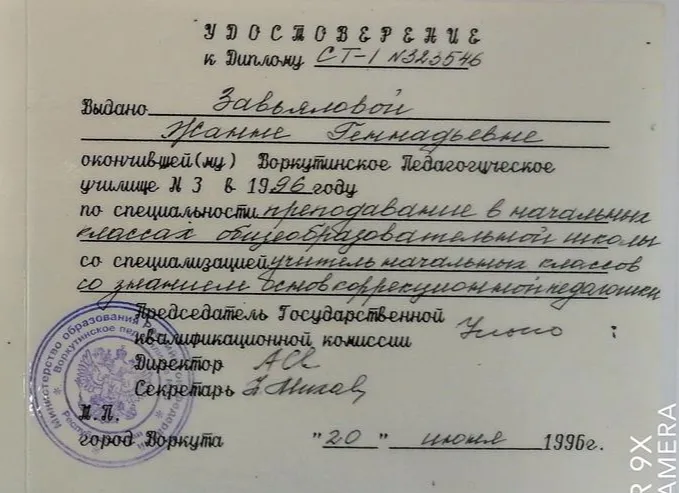 УДОСТОВЕРЕНИЕ
к Диплому СТ-I №323546
Выдано Завьяловой
Жанне Геннадьевне
окончившей(му) Воркутинское Педагогическое
училище N 3 в 1996 году
по специальности преподавание в начальных
классах общеобразовательной школы
со специализацией учитель начальных классов
со знанием основ коррекционной педагогики
Председатель Государственной
квалификационной комиссии
Директор
Секретарь
М.П.
город Воркута "20" июня 1996г.
Министерство образования
Воркутинское
R 9X
AMERA